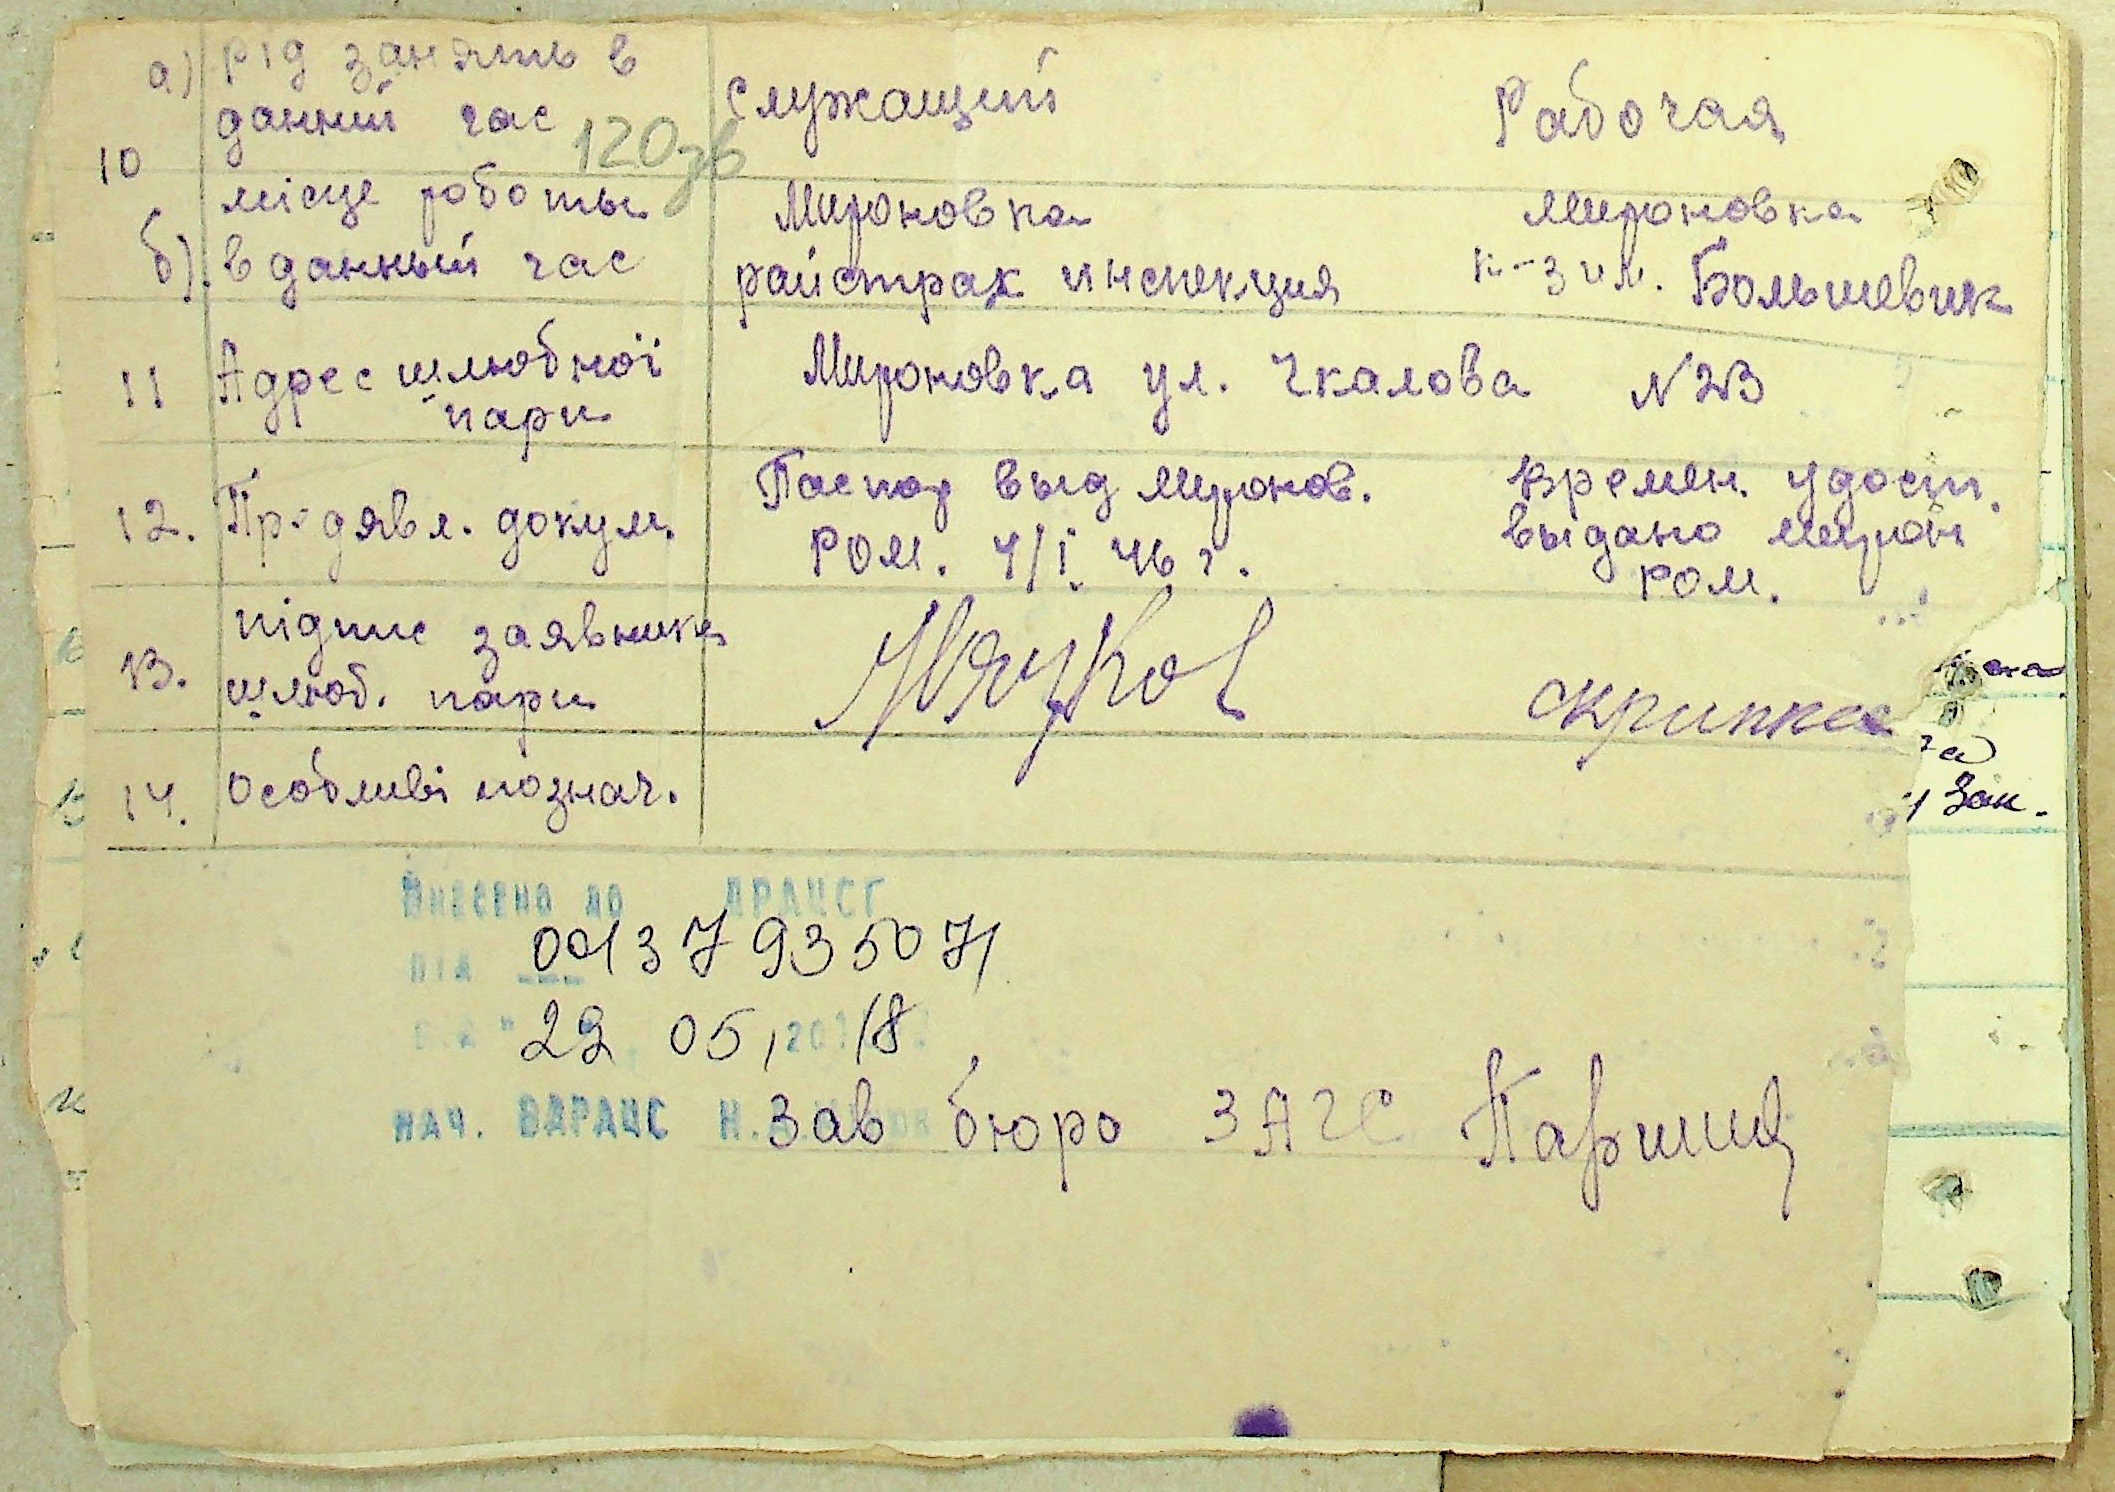 а) рід занять в
данний час
служащий
Рабочая
120зв
10
місце роботы
б). в данный час
Мироновка
райстрах инспекция
Мироновка
к-з им. Большевик
11 Адрес шлюбної
пари
Мироновка ул. Чкалова N 23
12. Предявл. докум.
Паспор выд Миронов.
РОМ. 4/I. 46 г.
Времен. удост.
выдано Мирон
РОМ.
13. підпис заявника
шлюб. пари
Скрипка
14. Особливі познач.
Внесено до ДРАЦСГ
піл 00137935071
від " 29 05, 2018
нач. ВДРАЦС Н.
Зав бюро ЗАГС
Зак.